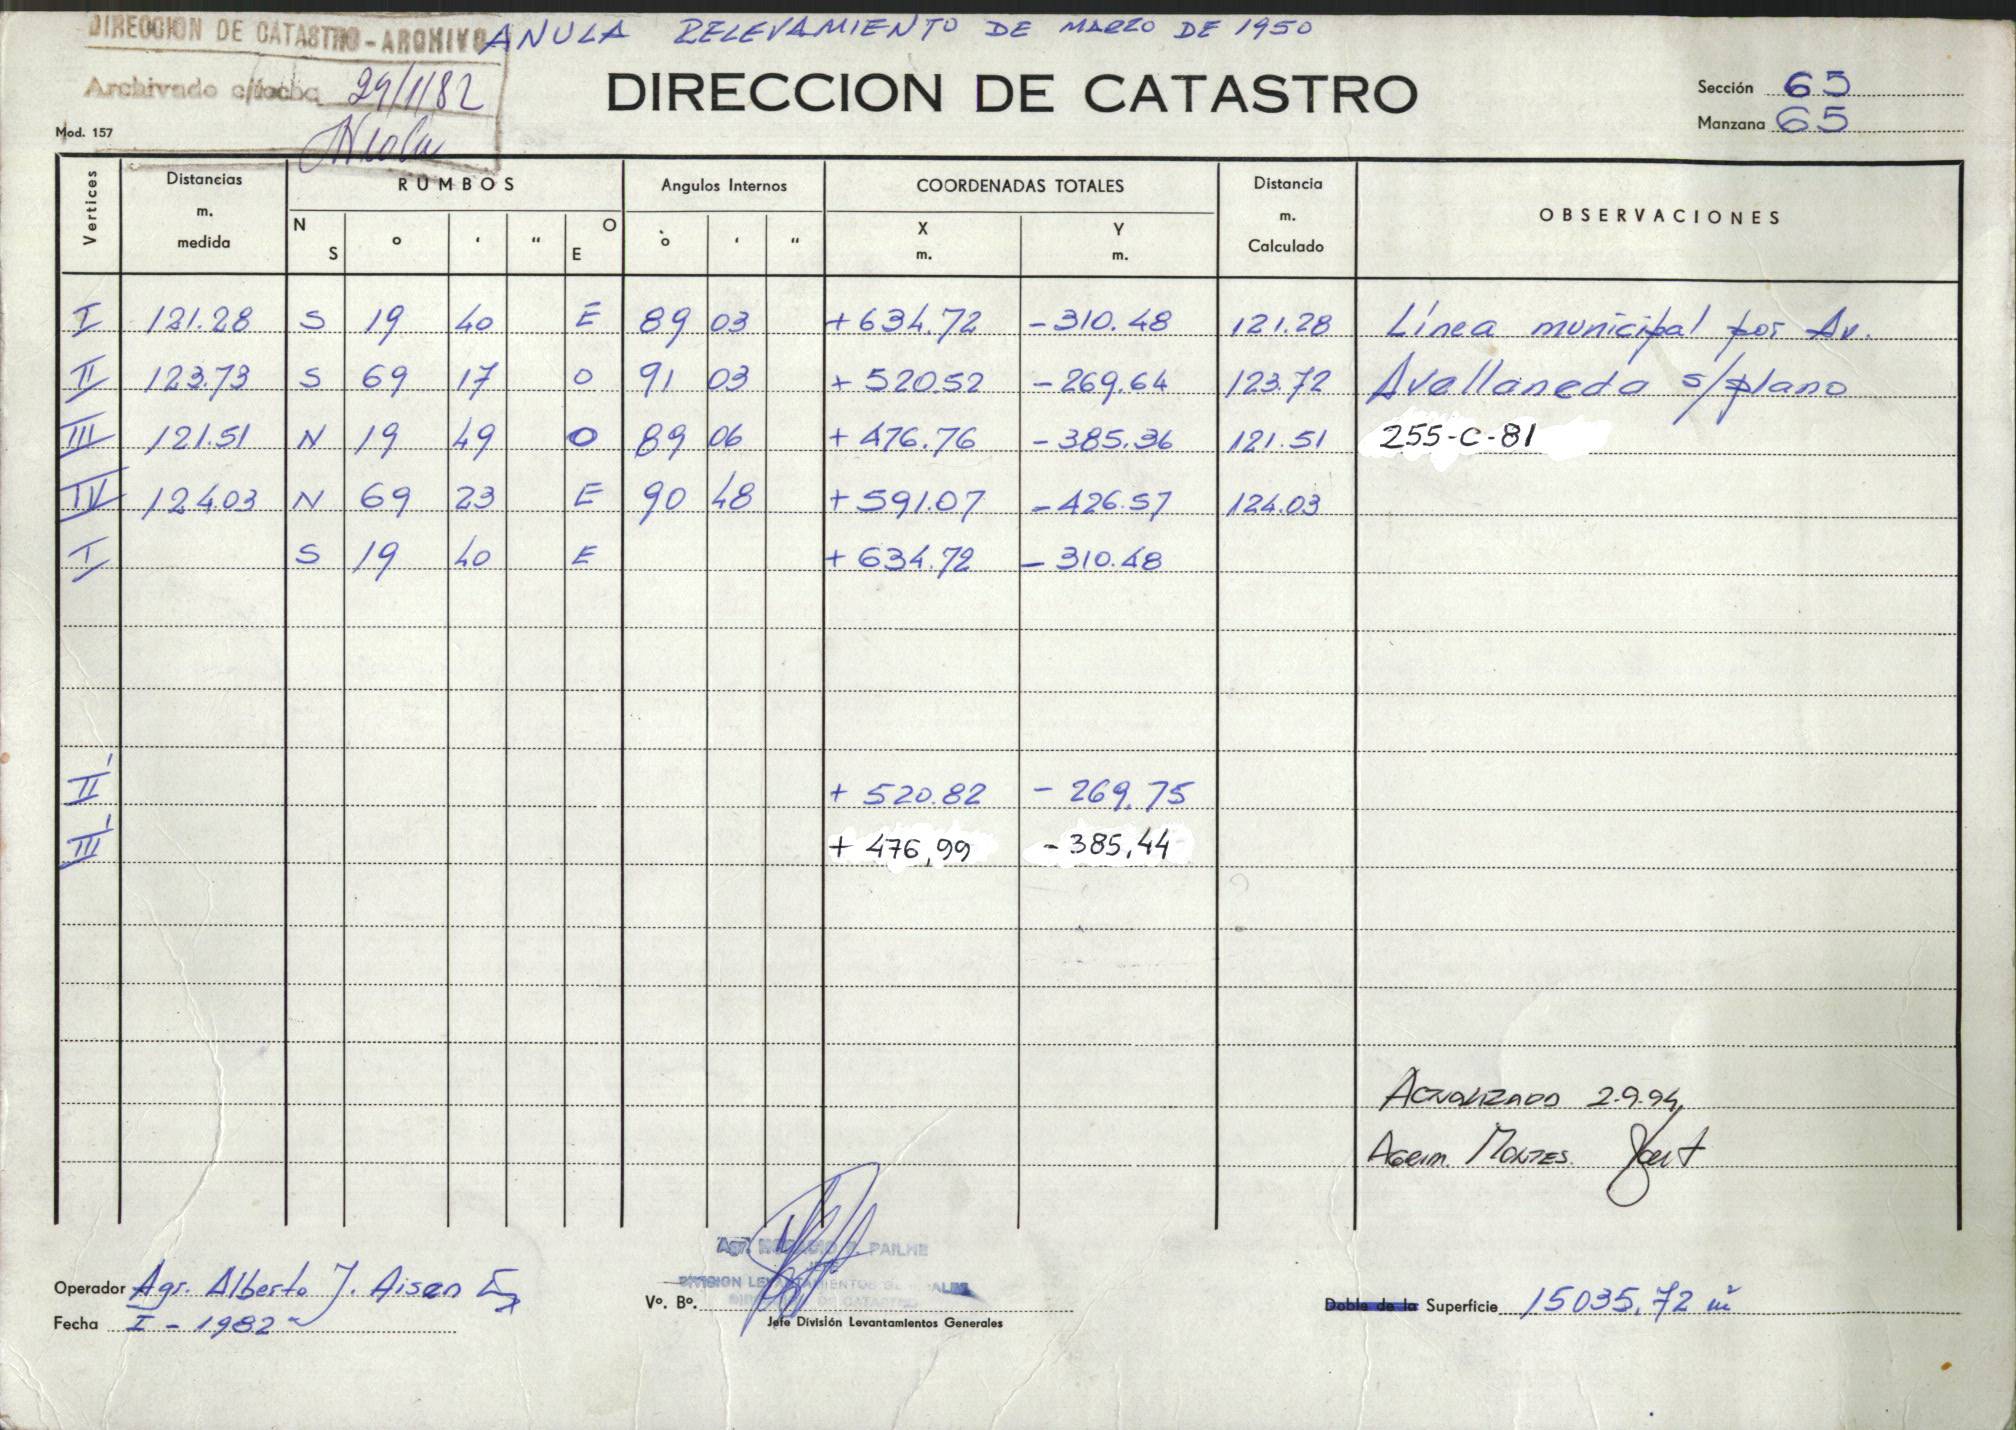 DIRECCION DE CATASTRO - ARCHIVO
ANULA RELEVAMIENTO DE MARZO DE 1950
Archivado c/fecha 29/1/82
DIRECCION DE CATASTRO
Sección 65
Manzana 65
Mod. 157
Vertices Distancias m. medida RUMBOS Angulos Internos COORDENADAS TOTALES Distancia m. Calculado OBSERVACIONES
N S o ' " O E o ' " X m. Y m.
I 121.28 S 19 40 E 89 03 +634.72 -310.48 121.28 Línea municipal por Av.
II 123.73 S 69 17 O 91 03 +520.52 -269.64 123.72 Avellaneda s/plano
III 121.51 N 19 49 O 89 06 +476.76 -385.36 121.51 255-C-81
IV 124.03 N 69 23 E 90 48 +591.07 -426.57 124.03
I S 19 40 E +634.72 -310.48
II' +520.82 -269.75
III' +476,99 -385,44
Actualizado 2.9.94
Agrim. Montes.
Agr. PAILHE
JEFE
DIVISION LEVANTAMIENTOS GENERALES
DIRECCION DE CATASTRO
Operador Agr. Alberto J. Aisen
Vº. Bº.
Doble de la Superficie 15035,72 m²
Fecha I-1982
Jefe División Levantamientos Generales